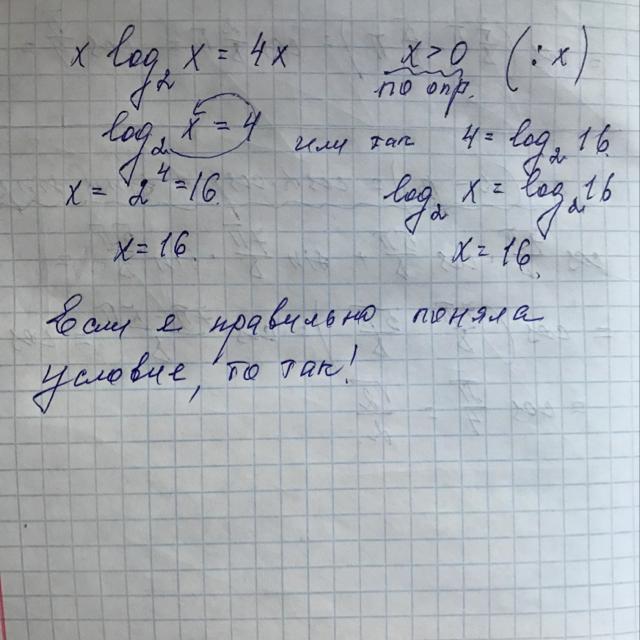 x log₂ x = 4x x > 0 (: x)
по опр.
log₂ x = 4 или так 4 = log₂ 16.
x = 2⁴ = 16. log₂ x = log₂ 16
x = 16. x = 16.
Если я правильно поняла
условие, то так!